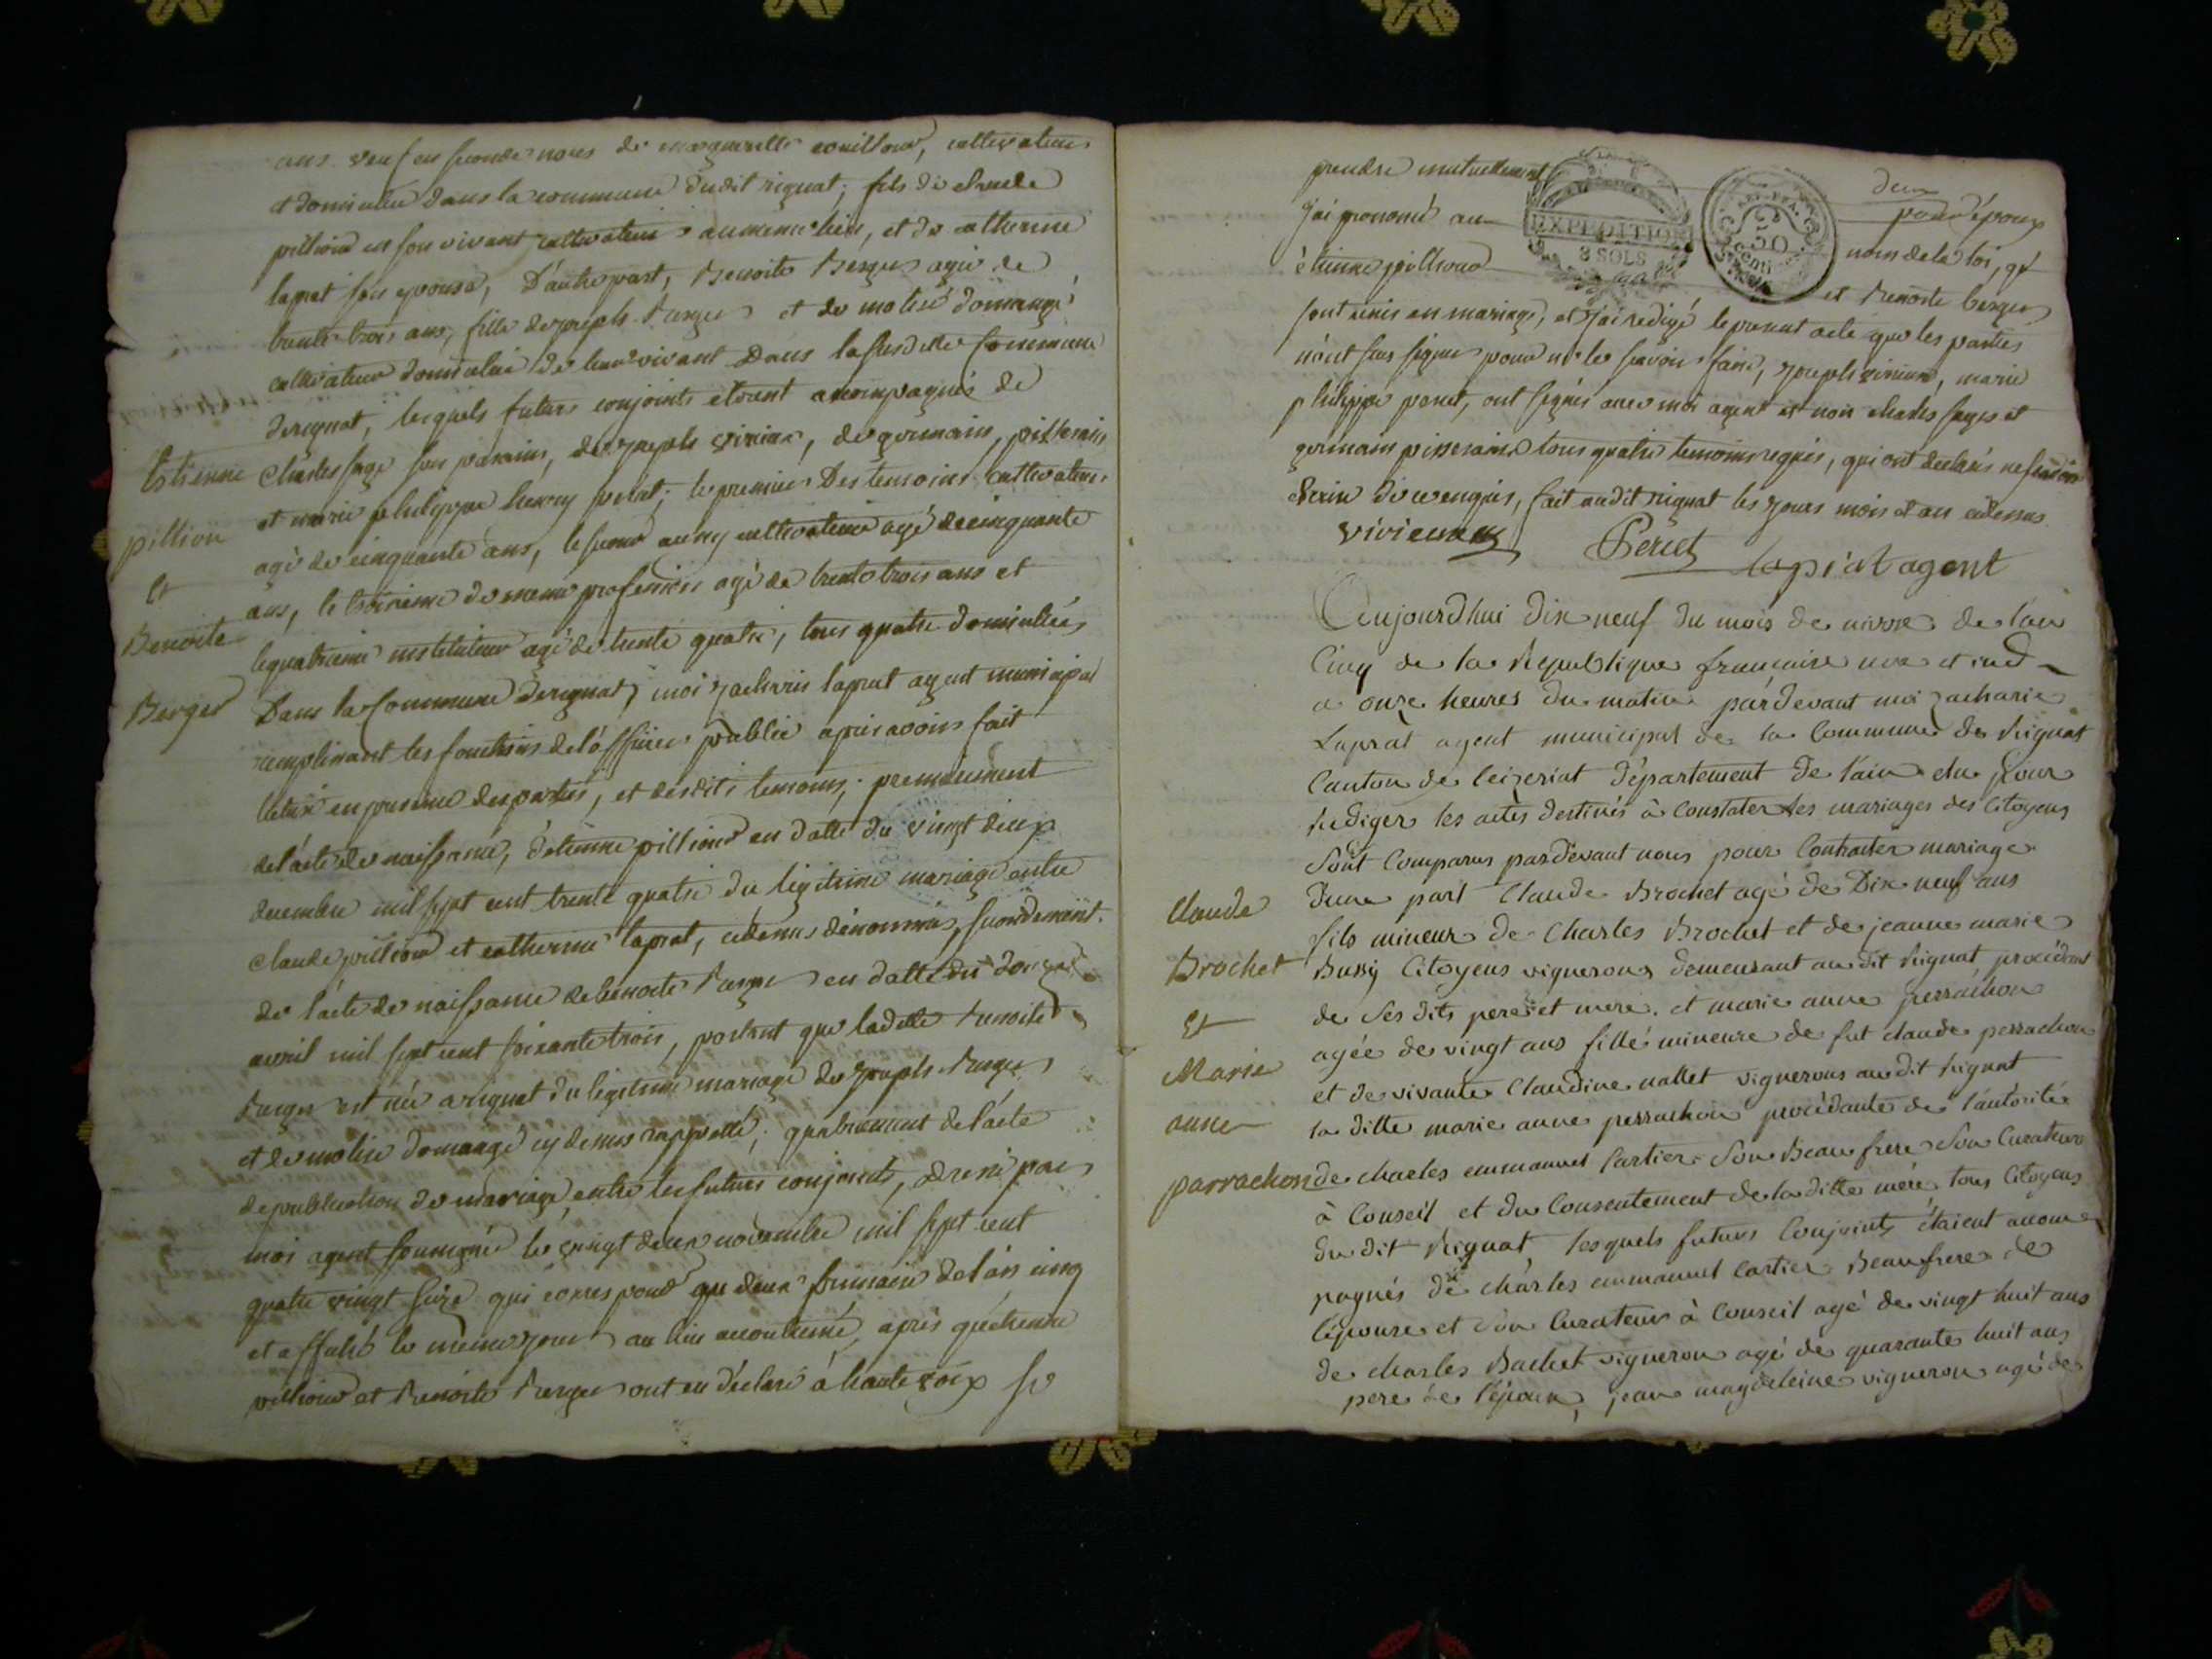 ans veuf en seconde noces de marguerite couilloud, cultivateur
et domicilié dans la commune dudit rignat; fils de claude
pilliond en son vivant cultivateur au même lieu, et de catherine
laprat son epouse, D'autre part, Benoite Berger agée de
trente trois ans, fille de joseph Berger et de
cultivateur domicilié de leur vivant Dans la susditte Commune
de rignat, lesquels futurs conjoints etoient accompagnés de
Charles sage son parain, de joseph vivian, de germain pisserain
et marie philippe henry peret; le premier Des temoins cultivateur
agé de cinquante ans, le second aussy cultivateur agé de cinquante
ans, le troisieme de meme profession agé de trente trois ans et
le quatrieme instituteur agé de trente quatre, tous quatre domiciliés
Dans la Commune de rignat; moi zacharie laprat agent municipal
remplissant les fonctions de l'officier public apres avoir fait
lecture en presence des parties, et desdits temoins; premierement
de l'acte de naissance, d'etienne pilliond en datte du vingt deux
decembre mil sept cent trente quatre du légitime mariage entre
claude pilliond et catherine laprat, cidessus dénommés, secondement
de l'acte de naissance de benoite Berger en datte du douze
avril mil sept cent soixante trois, portant que laditte benoite
Berger est née a rignat du légitime mariage de joseph Berger
et de cy dessus rappellé; quatriement de l'acte
de publication de mariage entre les futurs conjoints, dressé par
moi agent soussigné le vingt deux novembre mil sept cent
quatre vingt seize qui correspond au deux frimaire de l'an cinq
et affiché le meme jour au lieu accoutumé, après qu'etienne
pilliond et Benoite Berger ont eu déclaré à haute voix se
Estienne
pillion
Et
Benoite
Berger
deux
prendre mutuellement pour époux
J'ai prononcé au nom de la loi, qu'
étienne pilliond et Benoite berger
EXPEDITION
8 SOLS
50
Centi
sont unis en mariage, et j'ai redigé le present acte que les parties
n'ont sçus signer pour ne le sçavoir faire, joseph vivian, marie
philippe peret, ont signés avec moi agent et non charles sage et
germain pisserain tous quatre temoins requis, qui ont declarés ne sçavoir
Ecrire de ce enquis, fait audit rignat les jours mois et an cidessus
vivian Peret laprat agent
Aujourdhui dix neuf du mois de nivose de l'an
Cinq de la Republique francaise une et ind
a onze heures du matin pardevant moi zacharie
Laprat agent municipal de la Commune de Rignat
Canton de Ceizeriat Département de l'ain elu pour
Rediger les actes destinés à Constater les mariages des Citoyens
Sont Comparus pardevant nous pour Contracter mariage
Dune part Claude Brochet agé de Dix neuf ans
fils mineur de Charles Brochet et de jeanne marie
Bussy Citoyens vignerons demeurant audit Rignat procédant
de Ses dits pere et mere. et marie anne perrachon
agée de vingt ans fille mineure de fut claude perrachon
et de vivante Claudine nallet vignerons audit Rignat
la ditte marie anne perrachon procédante de l'autorité
de charles emmanuel Cartier Son Beau frere Son Curateur
à Conseil et du Consentement de la ditte mére tous Citoyens
du dit Rignat, lesquels futurs Conjoints étaient accom
pagnés de charles emmanuel Cartier Beaufrere de
l'épouse et Son Curateur à Conseil agé de vingt huit ans
de charles Bochet vigneron agé de quarante huit ans
pere de l'époux, jean magdeleine vigneron agé de
Claude
Brochet
Et
Marie
anne
parrachon